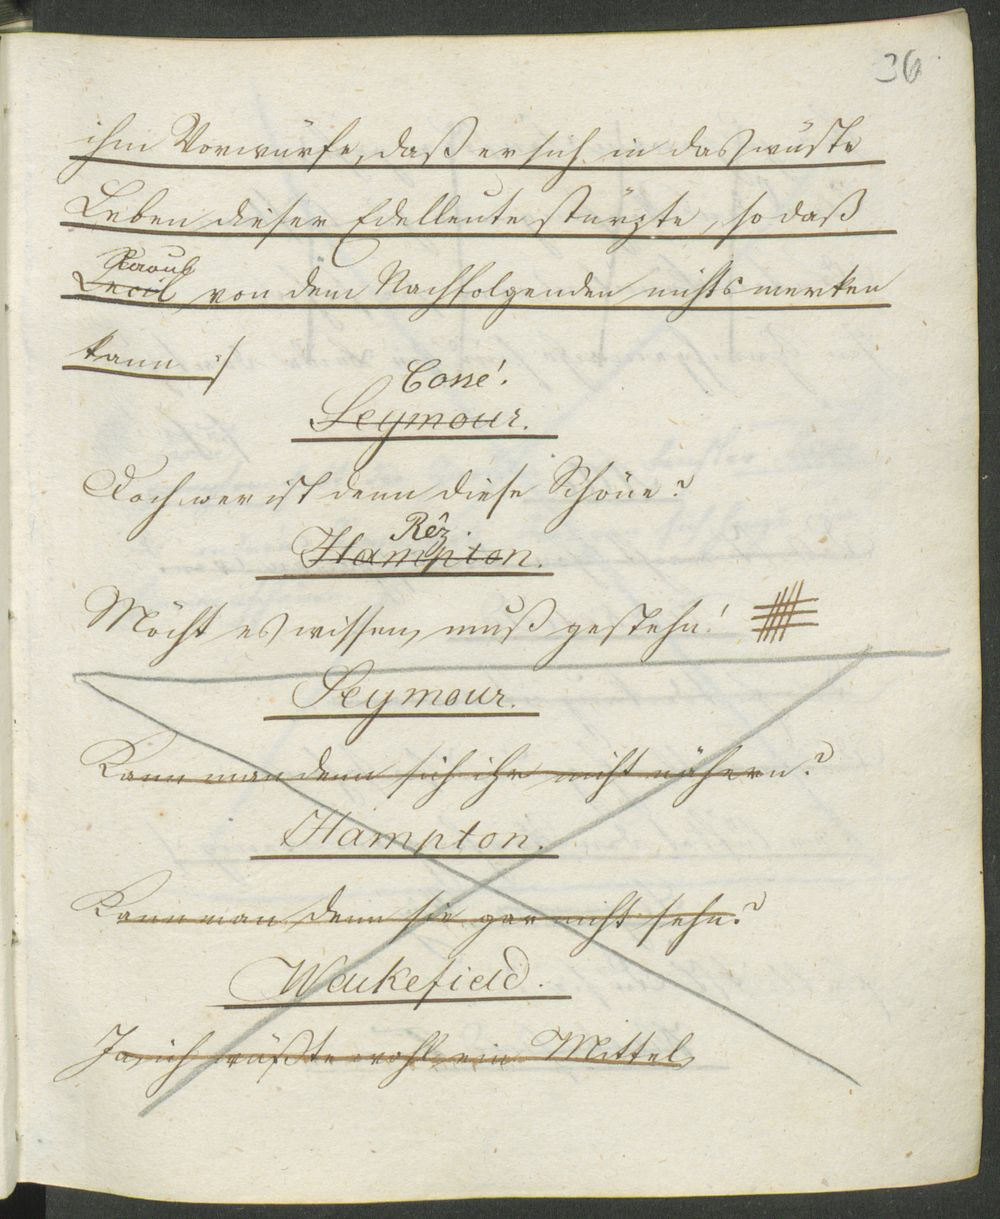 36
ihm Vorwürfe, daß er sich in das wüste
Leben dieser Edelleute stürzte, so daß
Raoul
Cecil von dem Nachfolgenden nichts merken
kann :/
Cossé.
Seymour.
Doch wer ist denn diese Schöne?
Réz.
Hampton.
Möcht es wissen, muß gestehn!
Seymour.
Kann man denn sich ihr nicht nähern?
Hampton.
Kann man denn sie gar nicht sehn?
Wakefield.
Ja, ich wüßte wohl ein Mittel,